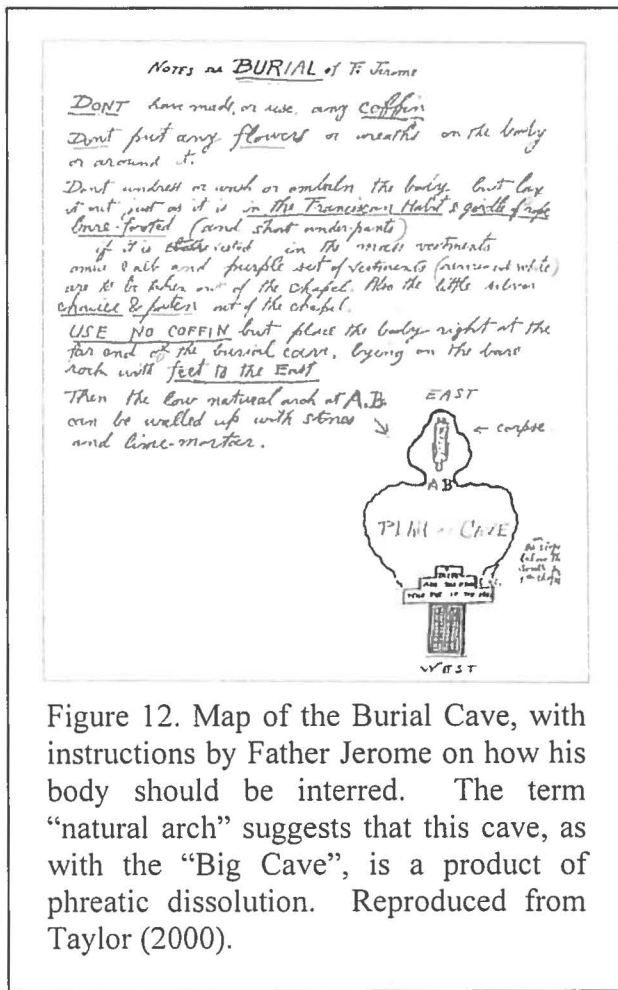 NOTES on BURIAL of Fr. Jerome
DONT have made, or use, any coffin
Dont put any flowers or wreaths on the body
or around it.
Dont undress or wash or embalm the body. but lay
it out just as it is in the Franciscan Habit & girdle of rope
bare-footed (and short under-pants)
if it is vested in the mass vestments
amice & alb and purple set of vestments (never used white)
are to be taken out of the chapel. Also the little silver
chalice & paten out of the chapel.
USE NO COFFIN but place the body right at the
far end of the burial cave, lying on the bare
rock with feet to the East
Then the low natural arch at A.B.
can be walled up with stones
and lime-mortar.
EAST
← corpse
A B
PLAN of CAVE
WEST
Figure 12. Map of the Burial Cave, with
instructions by Father Jerome on how his
body should be interred. The term
“natural arch” suggests that this cave, as
with the “Big Cave”, is a product of
phreatic dissolution. Reproduced from
Taylor (2000).